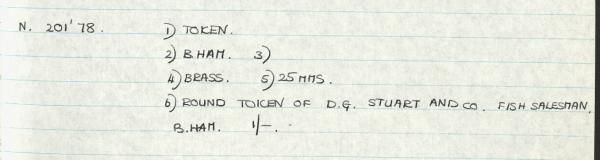 N. 201'78. 1) TOKEN.
2) B.HAM. 3)
4) BRASS. 5) 25 MMS.
6) ROUND TOKEN OF D.G. STUART AND CO. FISH SALESMAN.
B.HAM. 1/-.